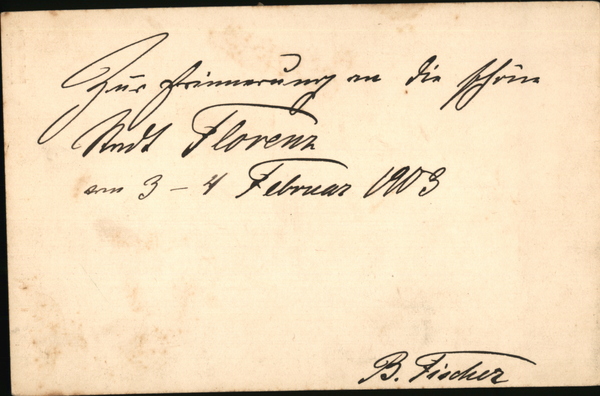 Zur Erinnerung an die schöne
Stadt Florenz
am 3 – 4 Februar 1903
B. Fischer